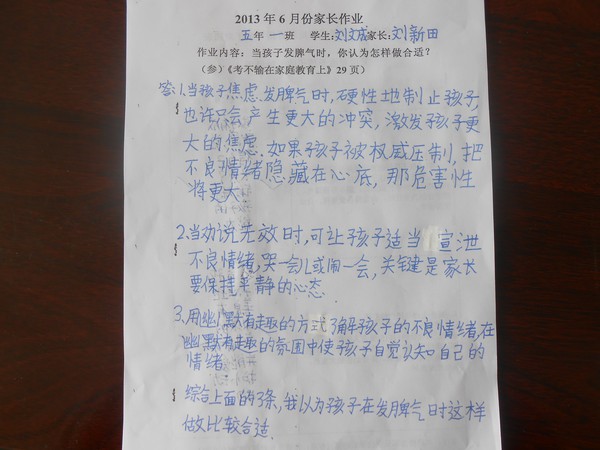 2013年6月份家长作业
五年一班 学生:刘文成家长:刘新田
作业内容:当孩子发脾气时,你认为怎样做合适?
(参)《考不输在家庭教育上》29页)
答:1.当孩子焦虑.发脾气时,硬性地制止孩子,
也许只会产生更大的冲突,激发孩子更
大的焦虑.如果孩子被权威压制,把
不良情绪隐藏在心底,那危害性
将更大.
2.当劝说无效时,可让孩子适当宣泄
不良情绪,哭一会儿或闹一会,关键是家长
要保持平静的心态.
3.用幽默有趣的方式了解孩子的不良情绪,在
幽默有趣的氛围中使孩子自觉认知自己的
情绪.
综合上面的3条,我以为孩子在发脾气时这样
做比较合适.